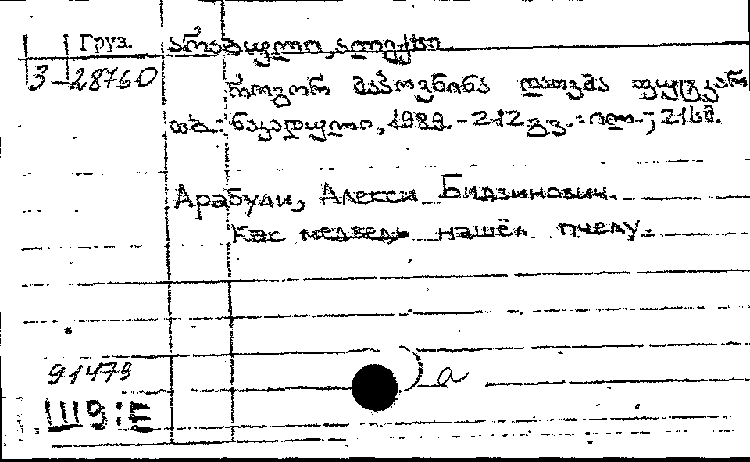 Груз. არაბული, ალექსი
3-28760
როგორ მაპოვნინა დათვმა ფუტკარი
თბ.: ნაკადული, 1989. - 212 გვ.: ილ.; 21სმ.
Арабули, Алекси Бидзинович.
Как медведь нашёл пчелу.
91479
а
Ш9:Е